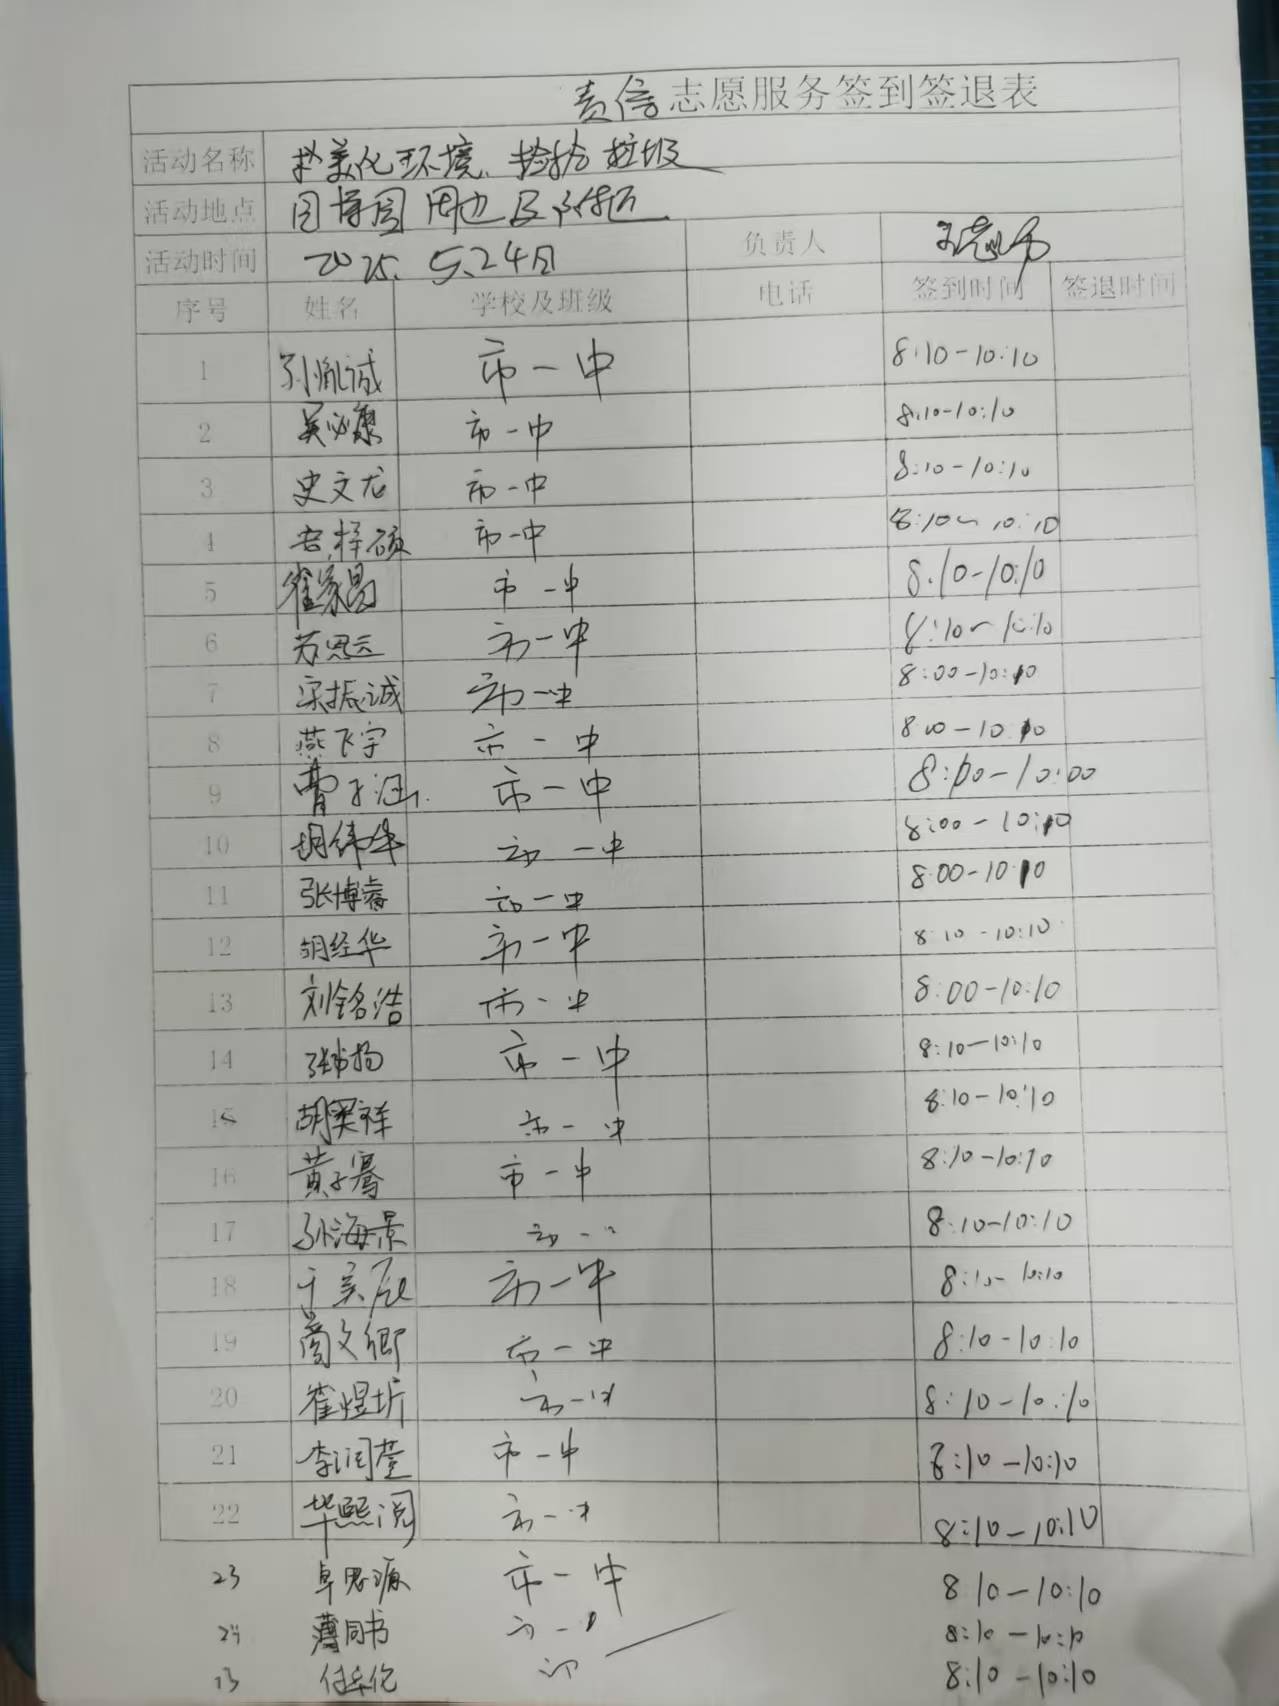 责信志愿服务签到签退表
活动名称 美化环境、捡拾垃圾
活动地点 园博园周边及附近
活动时间 2025.5.24日 负责人
序号 姓名 学校及班级 电话 签到时间 签退时间
1 孙胤诚 市一中 8:10-10:10
2 吴必康 市一中 8:10-10:10
3 史文龙 市一中 8:10-10:10
4 李择硕 市一中 8:10~10:10
5 崔家昌 市一中 8:10-10:10
6 苏恩云 市一中 8:10~10:10
7 宋振诚 市一中 8:00-10:10
8 燕飞宇 市一中 8:00-10:10
9 曹子涵 市一中 8:00-10:00
10 胡纬华 市一中 8:00-10:10
11 张博睿 市一中 8:00-10:10
12 胡经华 市一中 8:10-10:10
13 刘铭浩 市一中 8:00-10:10
14 张扬 市一中 8:10-10:10
15 胡荣祥 市一中 8:10-10:10
16 黄子骞 市一中 8:10-10:10
17 孙海景 市一〃 8:10-10:10
18 于奕辰 市一中 8:10-10:10
19 蔺文卿 市一中 8:10-10:10
20 崔煜圻 市一中 8:10-10:10
21 李润萱 市一中 8:10-10:10
22 毕熙阅 市一中 8:10-10:10
23 卓思源 市一中 8:10-10:10
24 薄同书 市一中 8:10-10:10
付乐伦 8:10-10:10